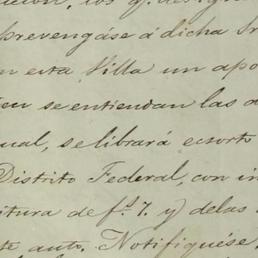 los q. desig
prevengáse á dicha Sr
en esta Villa un apo
ien se entiendan las d
ual, se librará ecsorto
Distrito Federal, con in
itura de fs. 7. y delas
te auto. Notifíquése.